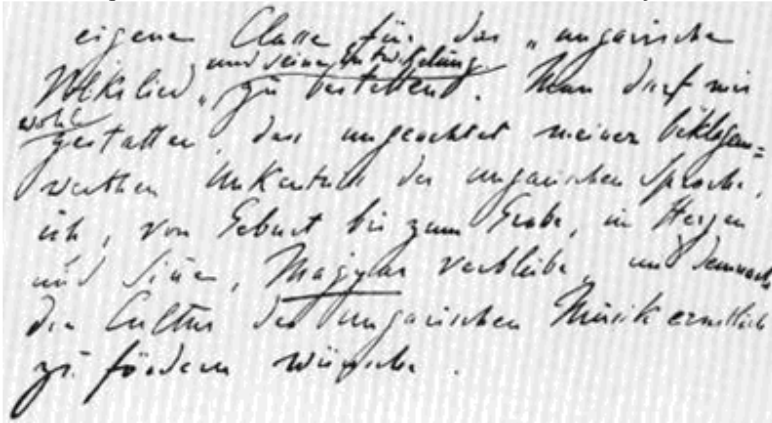 eigene Classe für das „ungarische
und seine Entwickelung
Volkslied" zu bestellen. Man darf mir
wohl
gestatten, dass ungeachtet meiner beklagens=
werthen Unkentniss der ungarischen Sprache,
ich, von Geburt bis zum Grabe, im Herzen
und Sinne, Magyar verbleibe, und demnach
die Cultur der ungarischen Musik ernstlich
zu fördern wünsche.